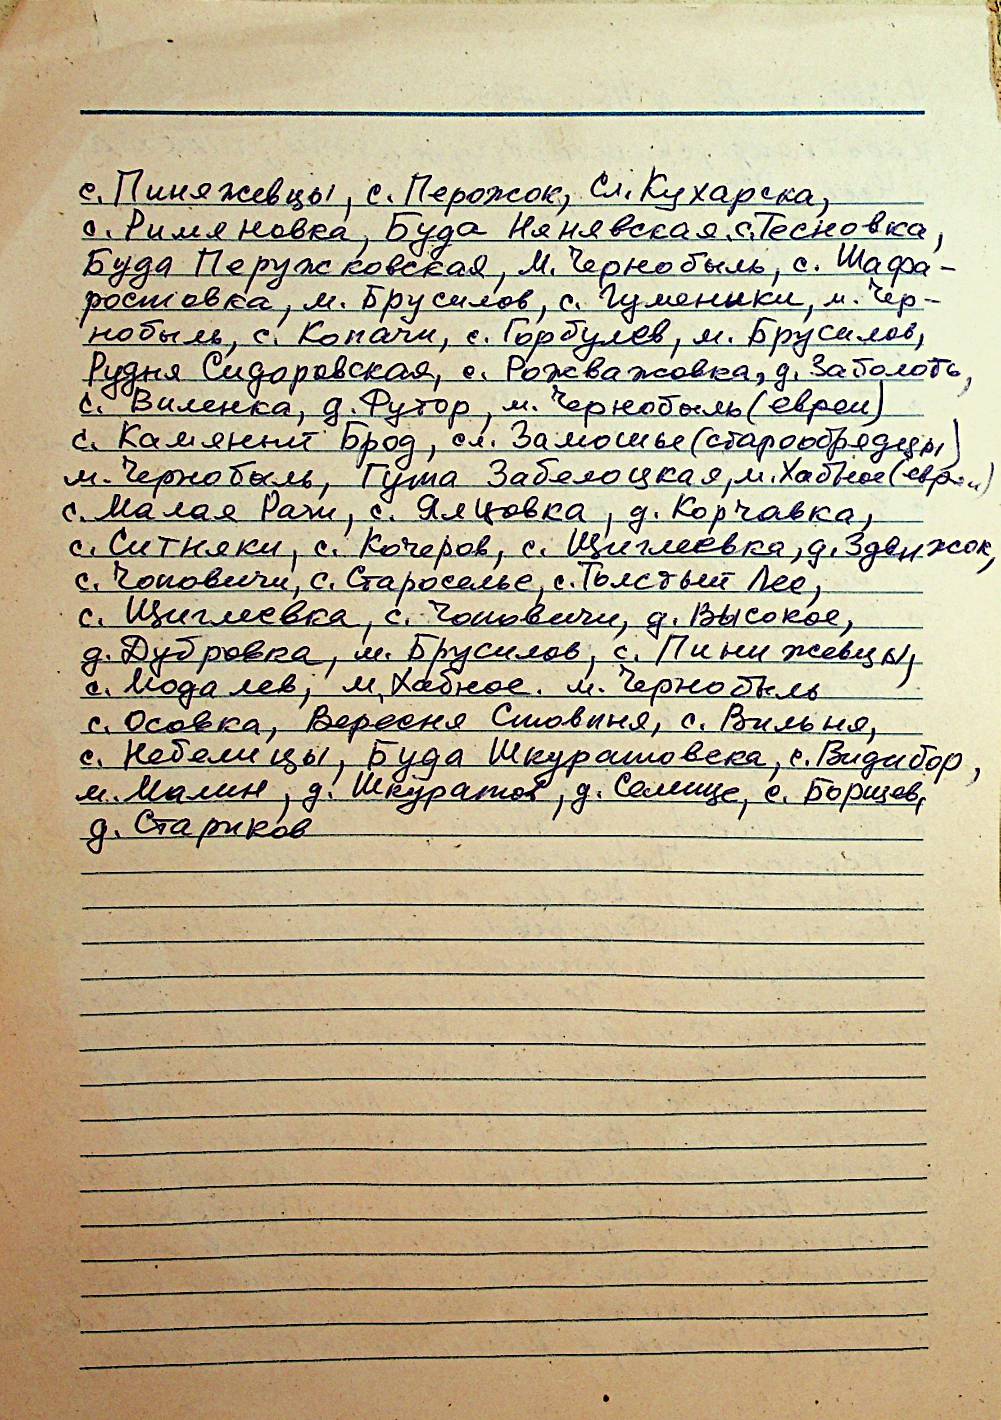 с. Пиняжевцы, с. Перожок, Сл. Кухарска,
с. Римяновка, Буда Нянявская, с. Тесновка,
Буда Перужковская, М. Чернобыль, с. Шафа-
ростовка, м. Брусилов, с. Гуменики, м. Чер-
нобыль, с. Копачи, с. Горбулев, м. Брусилов,
Рудня Сидоровская, с. Рожважовка, д. Заболоть,
с. Виленка, д. Футор, м. Чернобыль (евреи)
с. Камянит Брод, сл. Замошье (старообрядцы)
м. Чернобыль, Гута Забелоцкая, м. Хабное (евреи)
с. Малая Рачи, с. Ялцовка, д. Корчавка,
с. Ситняки, с. Кочеров, с. Щиглеевка, д. Здвижок,
с. Чоповичи, с. Староселье, с. Толстый Лес,
с. Щиглеевка, с. Чоповичи, д. Высокое,
д. Дубровка, м. Брусилов, с. Пинижевцы,
с. Модалев, м. Хабное. м. Чернобыль
с. Осовка, Вересня Стовпня, с. Вильня,
с. Небелицы, Буда Шкуратовска, с. Видибор,
м. Малин, д. Шкуратов, д. Селище, с. Борщев,
д. Стариков